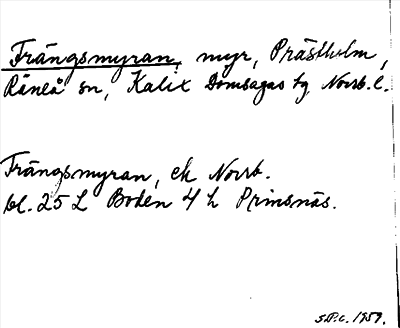 Trängsmyran, myr, Prästholm,
Råneå sn, Kalix Domsagas tg Norrb. l.
Trängsmyran, ek Norrb.
bl. 25 L Boden 4 h Prinsnäs.
S.P.C. 1959.